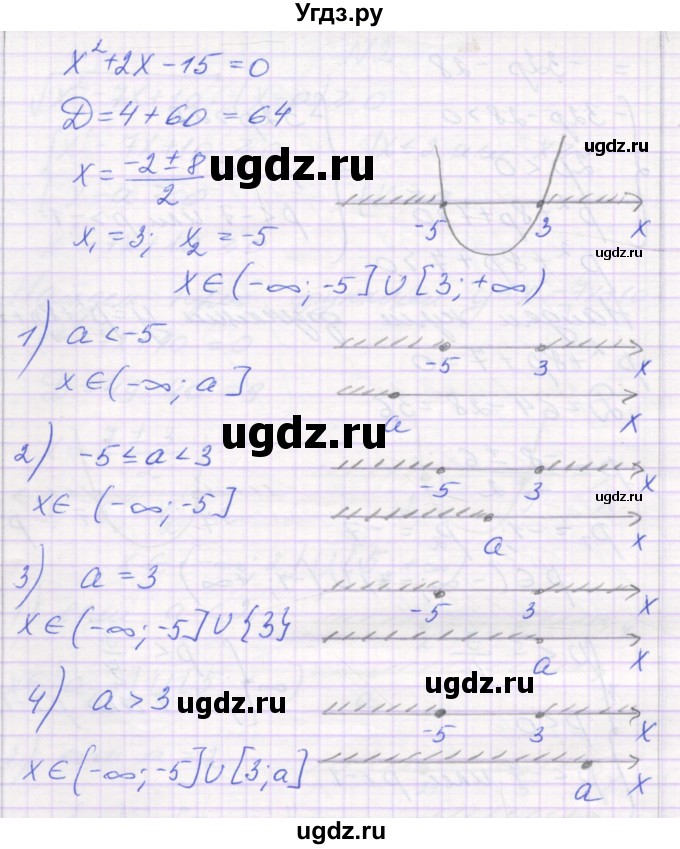 Угдз.ру
x²+2x-15=0
D=4+60=64
ugdz.ru
x=(-2±8)/2
ugdz.ru
-5 3 x
x₁=3; x₂=-5
ugdz.ru
x∈(-∞;-5]∪[3;+∞)
1) a<-5
-5 3 x
x∈(-∞;a]
a x
ugdz.ru
2) -5≤a<3
-5 3 x
x∈(-∞;-5]
ugdz.ru
a x
3) a=3
-5 3 x
x∈(-∞;-5]∪{3}
a x
ugdz.ru
4) a>3
ugdz.ru
-5 3 x
x∈(-∞;-5]∪[3;a]
a x
ugdz.ru